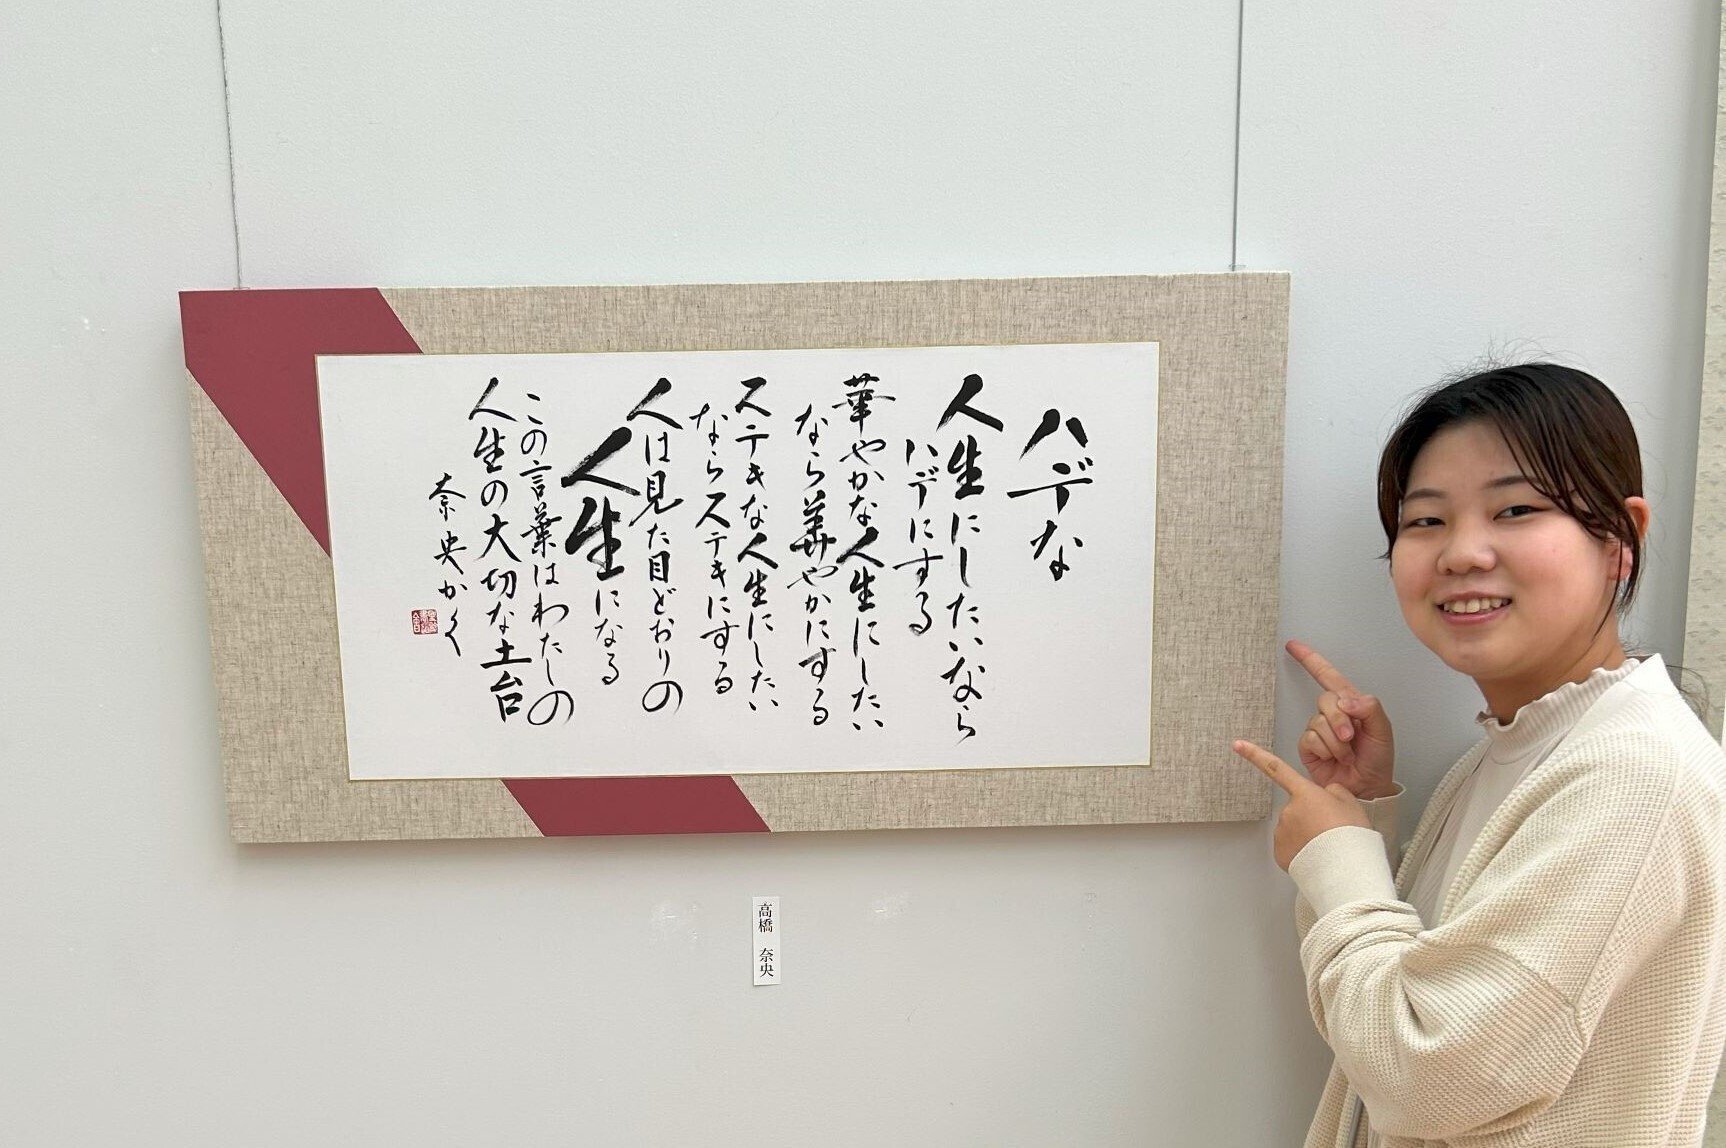 ハデな
人生にしたいなら
ハデにする
華やかな人生にしたい
なら華やかにする
ステキな人生にしたい
ならステキにする
人は見た目どおりの
人生になる
この言葉はわたしの
人生の大切な土台
奈央かく
高橋 奈央